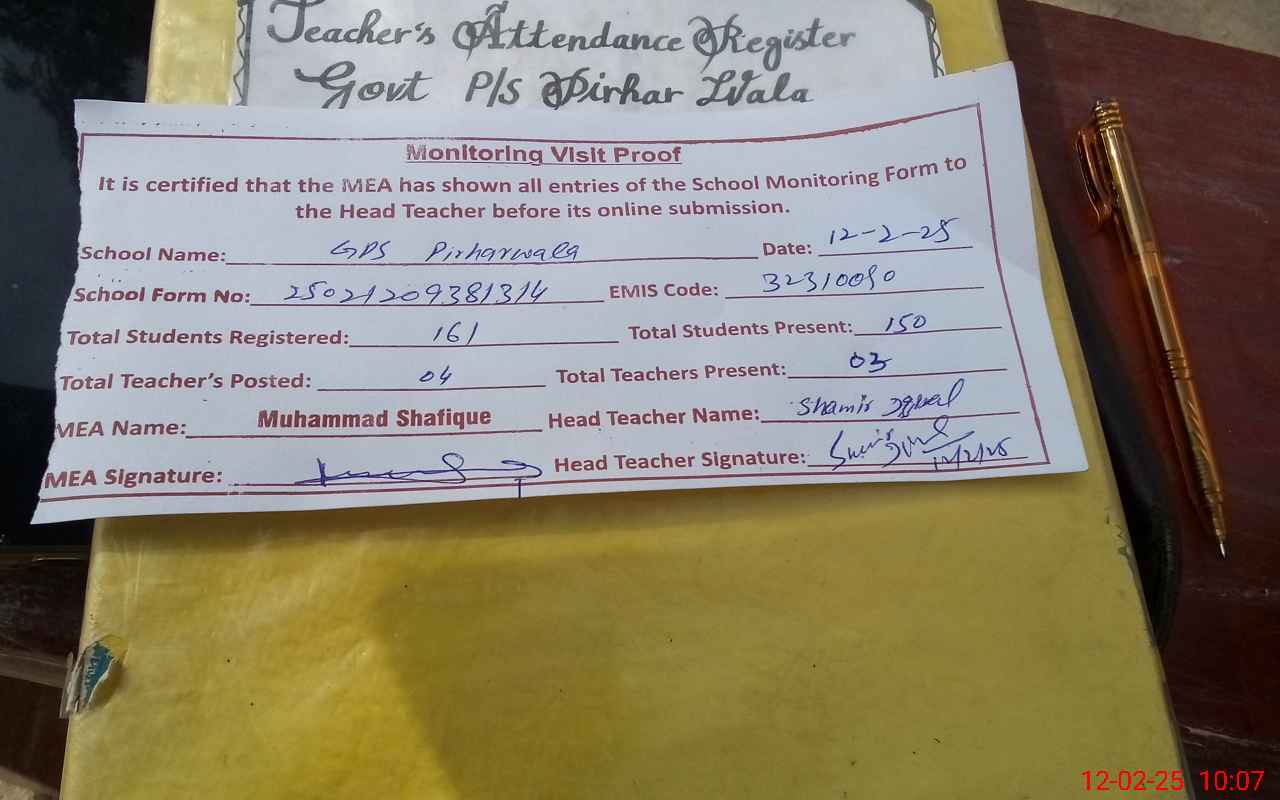 Teacher's Attendance Register
Govt P/S Pirhar Wala
Monitoring Visit Proof
It is certified that the MEA has shown all entries of the School Monitoring Form to
the Head Teacher before its online submission.
School Name: GPS Pirharwala Date: 12-2-25
School Form No: 25021209381314 EMIS Code: 32310090
Total Students Registered: 161 Total Students Present: 150
Total Teacher's Posted: 04 Total Teachers Present: 03
MEA Name: Muhammad Shafique Head Teacher Name: Shamir Iqbal
MEA Signature: Head Teacher Signature: 12/2/25
12-02-25 10:07